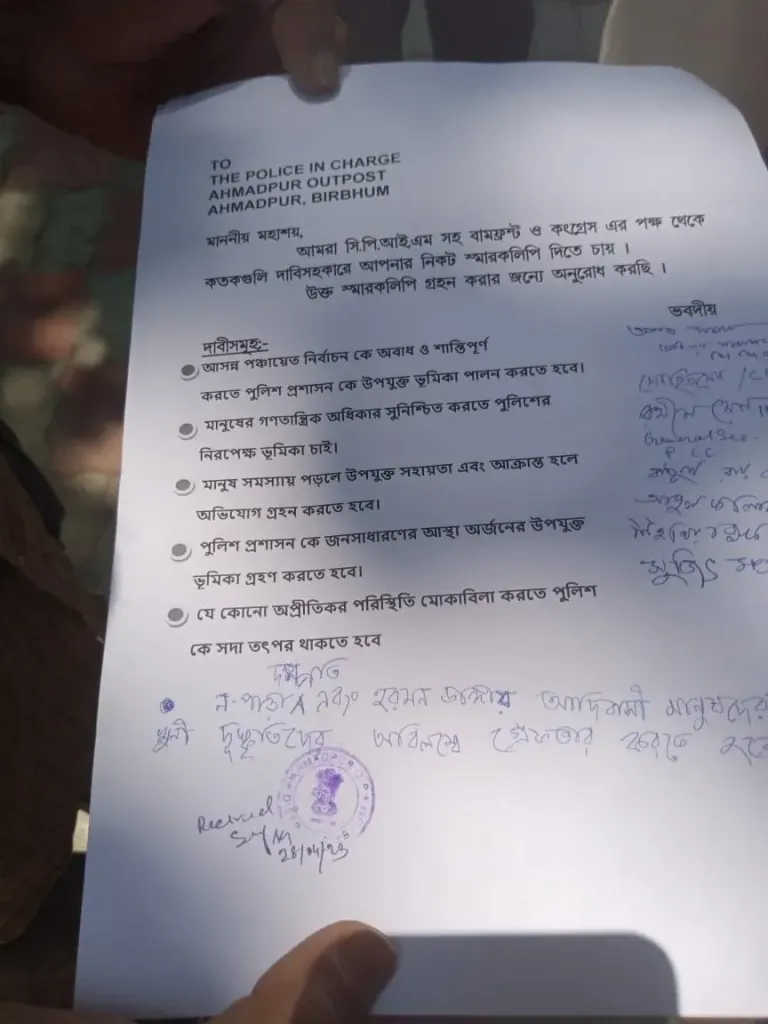 TO
THE POLICE IN CHARGE
AHMADPUR OUTPOST
AHMADPUR, BIRBHUM
মাননীয় মহাশয়,
আমরা সি.পি.আই.এম সহ বামফ্রন্ট ও কংগ্রেস এর পক্ষ থেকে
কতকগুলি দাবিসহকারে আপনার নিকট স্মারকলিপি দিতে চায় ।
উক্ত স্মারকলিপি গ্রহন করার জন্যে অনুরোধ করছি ।
ভবদীয়
দাবীসমূহ:-
আসন্ন পঞ্চায়েত নির্বাচন কে অবাধ ও শান্তিপূর্ণ
করতে পুলিশ প্রশাসন কে উপযুক্ত ভূমিকা পালন করতে হবে।
মানুষের গণতান্ত্রিক অধিকার সুনিশ্চিত করতে পুলিশের
নিরপেক্ষ ভূমিকা চাই।
মানুষ সমস্যায় পড়লে উপযুক্ত সহায়তা এবং আক্রান্ত হলে
অভিযোগ গ্রহন করতে হবে।
পুলিশ প্রশাসন কে জনসাধারণের আস্থা অর্জনের উপযুক্ত
ভূমিকা গ্রহণ করতে হবে।
যে কোনো অপ্রীতিকর পরিস্থিতি মোকাবিলা করতে পুলিশ
কে সদা তৎপর থাকতে হবে
General Sec.
P CC
ন-পাড়া আদিবাসী মানুষদের
খুনী দুষ্কৃতিদের অবিলম্বে গ্রেফতার করতে
Received
28/04/23